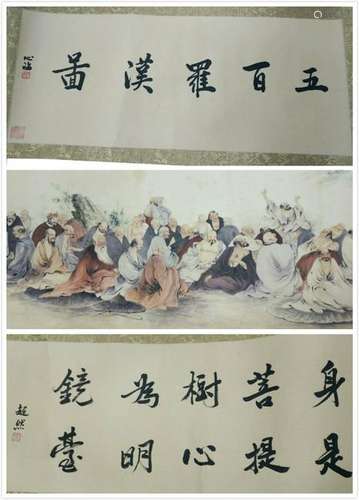 五百羅漢圖
身是
菩提
樹心
為明
鏡臺
超然